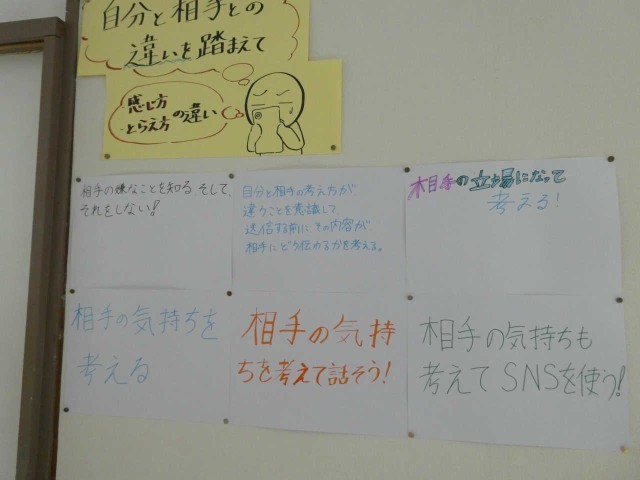 自分と相手との
違いを踏まえて
感じ方
とらえ方の違い
相手の嫌なことを知る そして、
それをしない!
自分と相手の考え方が
違うことを意識して
送信する前にその内容が
相手にどう伝わるかを考える。
相手の立場になって
考える!
相手の気持ちを
考える
相手の気持
ちを考えて話そう!
相手の気持ちも
考えてSNSを使う!